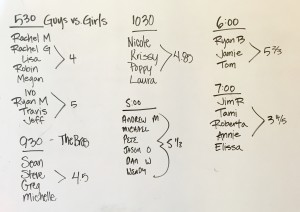 530 Guys vs. Girls
Rachel M
Rachel G
Lisa
Robin
Megan
4
Ivo
Ryan M
Travis
Jeff
5
930 - The Bros
Sean
Steve
Greg
michelle
4.5
1030
Nicole
Krissy
Poppy
Laura
4.80
5:00
ANDREW M
MICHAEL
PETE
JASON O
DAN W
WENDY
5 1/2
6:00
Ryan B
Jamie
Tom
5 2/3
7:00
Jim R
Tami
Roberta
Annie
Elissa
3 4/5